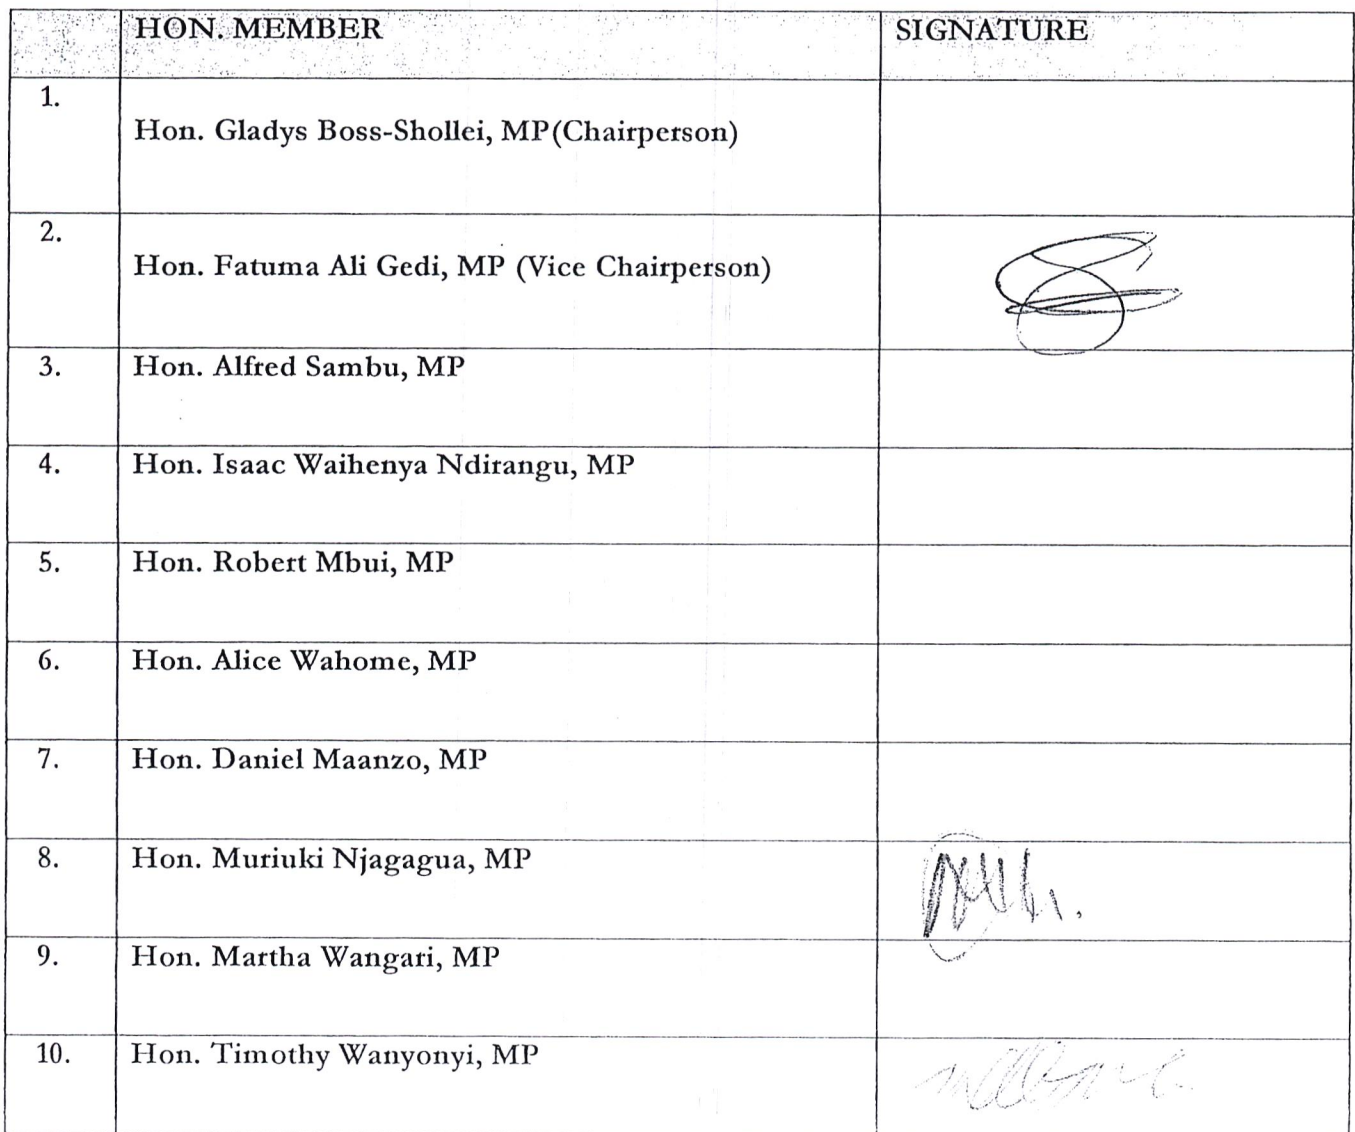 HON. MEMBER SIGNATURE
1.
Hon. Gladys Boss-Shollei, MP(Chairperson)
2.
Hon. Fatuma Ali Gedi, MP (Vice Chairperson)
3. Hon. Alfred Sambu, MP
4. Hon. Isaac Waihenya Ndirangu, MP
5. Hon. Robert Mbui, MP
6. Hon. Alice Wahome, MP
7. Hon. Daniel Maanzo, MP
8. Hon. Muriuki Njagagua, MP
9. Hon. Martha Wangari, MP
10. Hon. Timothy Wanyonyi, MP